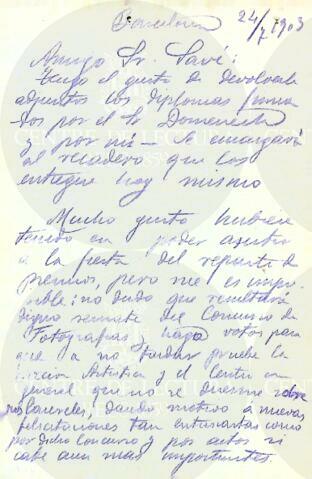 Barcelona 24/7 1903
Amigo Sr. Savé:
Tengo el gusto de devolverle
adjuntos los diplomas firma
dos por el Sr Domenech
y por mi – Se encargará
el recadero que los
entregue hoy mismo
Mucho gusto hubiera
tenido en poder asistir
a la fiesta del reparto de
premios, pero me es impo
sible: no dudo que resultará
digno remate del Concurso de
Fotografias y hago votos para
que a no tardar pruebe la
Sección Artística y el Centro en
general que no se duerme sobre
sus laureles, dando motivo a nuevas
felicitaciones tan entusiastas como
por dicho Concurso y por actos si
cabe aun mas importantes.
CENTRE DE LECTURA
1859